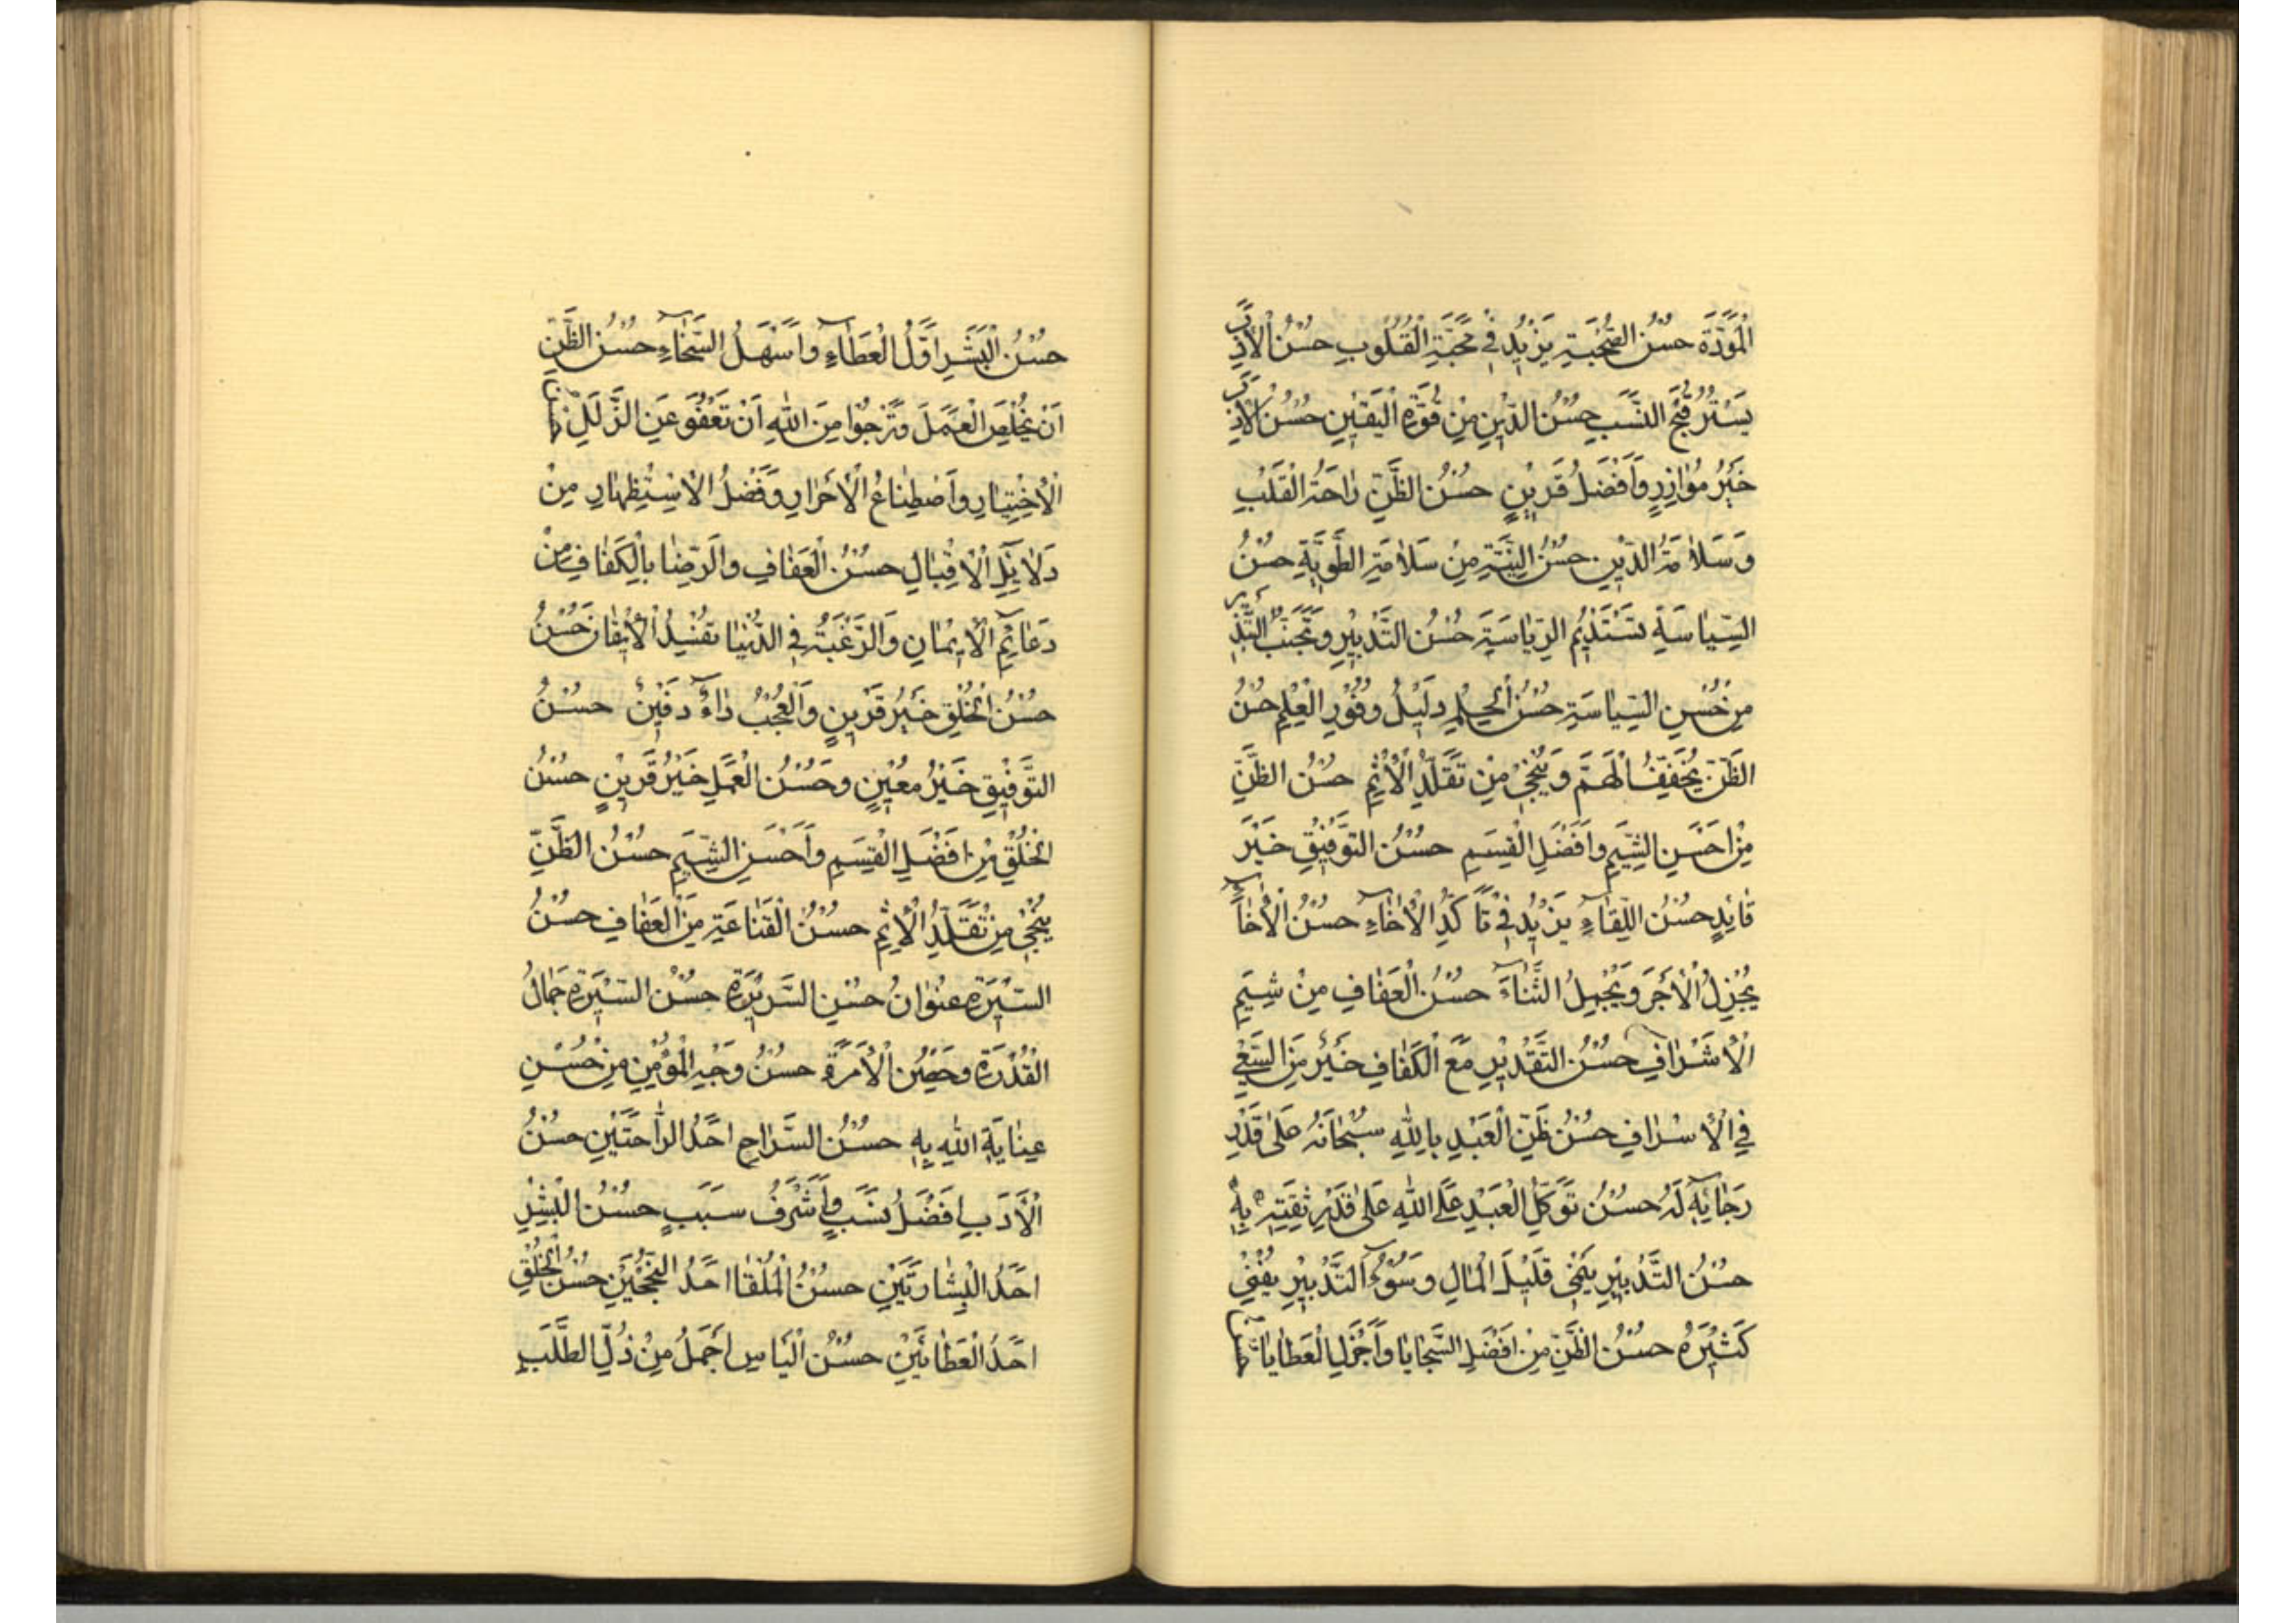 الْمَوَدَّةَ حُسْنُ الصُّحْبَةِ يَزْيْدُ فِي مَحَبَّةِ الْقُلُوبِ حُسْنُ الْاَدَبِ
يَسْتُرُ قُبْحَ النَّسَبِ حُسْنُ الدِّيْنِ مِنْ قُوَّةِ الْيَقِيْنِ حُسْنُ الْاَدَبِ
خَيْرُ مُؤازِرٍ وَاَفْضَلُ قَرِيْنٍ حُسْنُ الظَّنِّ رٰاحَةُ الْقَلْبِ
وَسَلاٰمَةُ الدّيْنِ حُسْنُ النِّيَّةِ مِنْ سَلاٰمَةِ الطَّوِيَّةِ حُسْنُ
السِّيٰاسَةِ تَسْتَدْيْمُ الرِّيٰاسَةَ حُسْنُ التَّدْبِيْرِ وَتَجَنُّبُ التَّبْذِيْرِ
مِنْ حُسْنِ السِّيٰاسَةِ حُسْنُ الْحِلْمِ دَلِيْلُ وُفُوْرِ الْعِلْمِ حُسْنُ
الظَّنِّ يُخَفِّفُ الْهَمَّ وَيُنْجِيْ مِنْ تَقَلُّدِ الْاِثْمِ حُسْنُ الظَّنِّ
مِنْ اَحْسَنِ الشِّيَمِ وَاَفْضَلِ الْقِسَمِ حُسْنُ التَّوْفِيْقِ خَيْرَ
قٰائِدٍ حُسْنُ اللِّقٰاءِ يَزْيْدُ فِيْ تَاَكُّدِ الْاِخٰاءِ حُسْنُ الْاِخٰاءِ
يُجْزِلُ الْاَجْرَ وَيُجْمِلُ الثَّنٰاءَ حُسْنُ الْعَفٰافِ مِنْ شِيَمِ
الْاَشْرٰافِ حُسْنُ التَّقْدِيْرِ مَعَ الْكَفٰافِ خَيْرٌ مِنَ السَّعْيِ
فِي الْاِسْرٰافِ حُسْنُ ظَنِّ الْعَبْدِ بِاللّٰهِ سُبْحٰانَهُ عَلىٰ قَدْرِ
رَجٰائِهِ لَهُ حُسْنُ تَوَكُّلِ الْعَبْدِ عَلَى اللّٰهِ عَلىٰ قَدْرِ ثِقَتِهِ بِهِ
حُسْنُ التَّدْبِيْرِ يُنْمِيْ قَلِيْلَ الْمٰالِ وَسُوْءُ التَّدْبِيْرِ يُفْنِيْ
كَثِيْرَهُ حُسْنُ الظَّنِّ مِنْ اَفْضَلِ السَّجٰايٰا وَاَجْزَلِ الْعَطٰايٰا
حُسْنُ الْبِشْرِ اَوَّلُ الْعَطٰاءِ وَاَسْهَلُ السَّخٰاءِ حُسْنُ الظَّنِّ
اَنْ يُخْلِصَ الْعَمَلَ وَتَرْجُوا مِنَ اللّٰهِ اَنْ تَعْفُوَ عَنِ الزَّلَلِ
الْاِخْتِيٰارِ وَاصْطِنٰاعُ الْاَحْرٰارِ وَفَضْلُ الْاِسْتِظْهٰارِ مِنْ
دَلاٰئِلِ الْاِقْبٰالِ حُسْنُ الْعَفٰافِ وَالرِّضٰا بِالْكَفٰافِ مِنْ
دَعٰائِمِ الْاِيْمٰانِ وَالرَّغْبَةُ فِي الدُّنْيٰا تُفْسِدُ الْاِيْقٰانَ حُسْنُ
حُسْنُ الْخُلْقِ خَيْرُ قَرِيْنٍ وَالْعُجْبُ دٰاءٌ دَفِيْنٌ حُسْنُ
التَّوْفِيْقِ خَيْرُ مُعِيْنٍ وَحُسْنُ الْعَمَلِ خَيْرُ قَرِيْنٍ حُسْنُ
الْخُلْقِ مِنْ اَفْضَلِ الْقِسَمِ وَاَحْسَنِ الشِّيَمِ حُسْنُ الظَّنِّ
يُنْجِيْ مِنْ تَقَلُّدِ الْاِثْمِ حُسْنُ الْقَنٰاعَةِ مِنَ الْعَفٰافِ حُسْنُ
السِّيْرَةِ عُنْوٰانُ حُسْنِ السَّرِيْرَةِ حُسْنُ السِّيْرَةِ جَمٰالُ
الْقُدْرَةِ وَحِصْنُ الْاِمْرَةِ حُسْنُ وَجْهِ الْمُؤْمِنِ مِنْ حُسْنِ
عِنٰايَةِ اللّٰهِ بِهِ حُسْنُ السَّرٰاحِ اَحَدُ الرّٰاحَتَيْنِ حُسْنُ
الْاَدَبِ اَفْضَلُ نَسَبٍ وَاَشْرَفُ سَبَبٍ حُسْنُ الْبِشْرِ
اَحَدُ الْبِشٰارَتَيْنِ حُسْنُ الْمُلْقٰا اَحَدُ النُّجْحَيْنِ حُسْنُ الْخُلْقِ
اَحَدُ الْعَطٰائَيْنِ حُسْنُ الْيَاْسِ اَجْمَلُ مِنْ ذُلِّ الطَّلَبِ